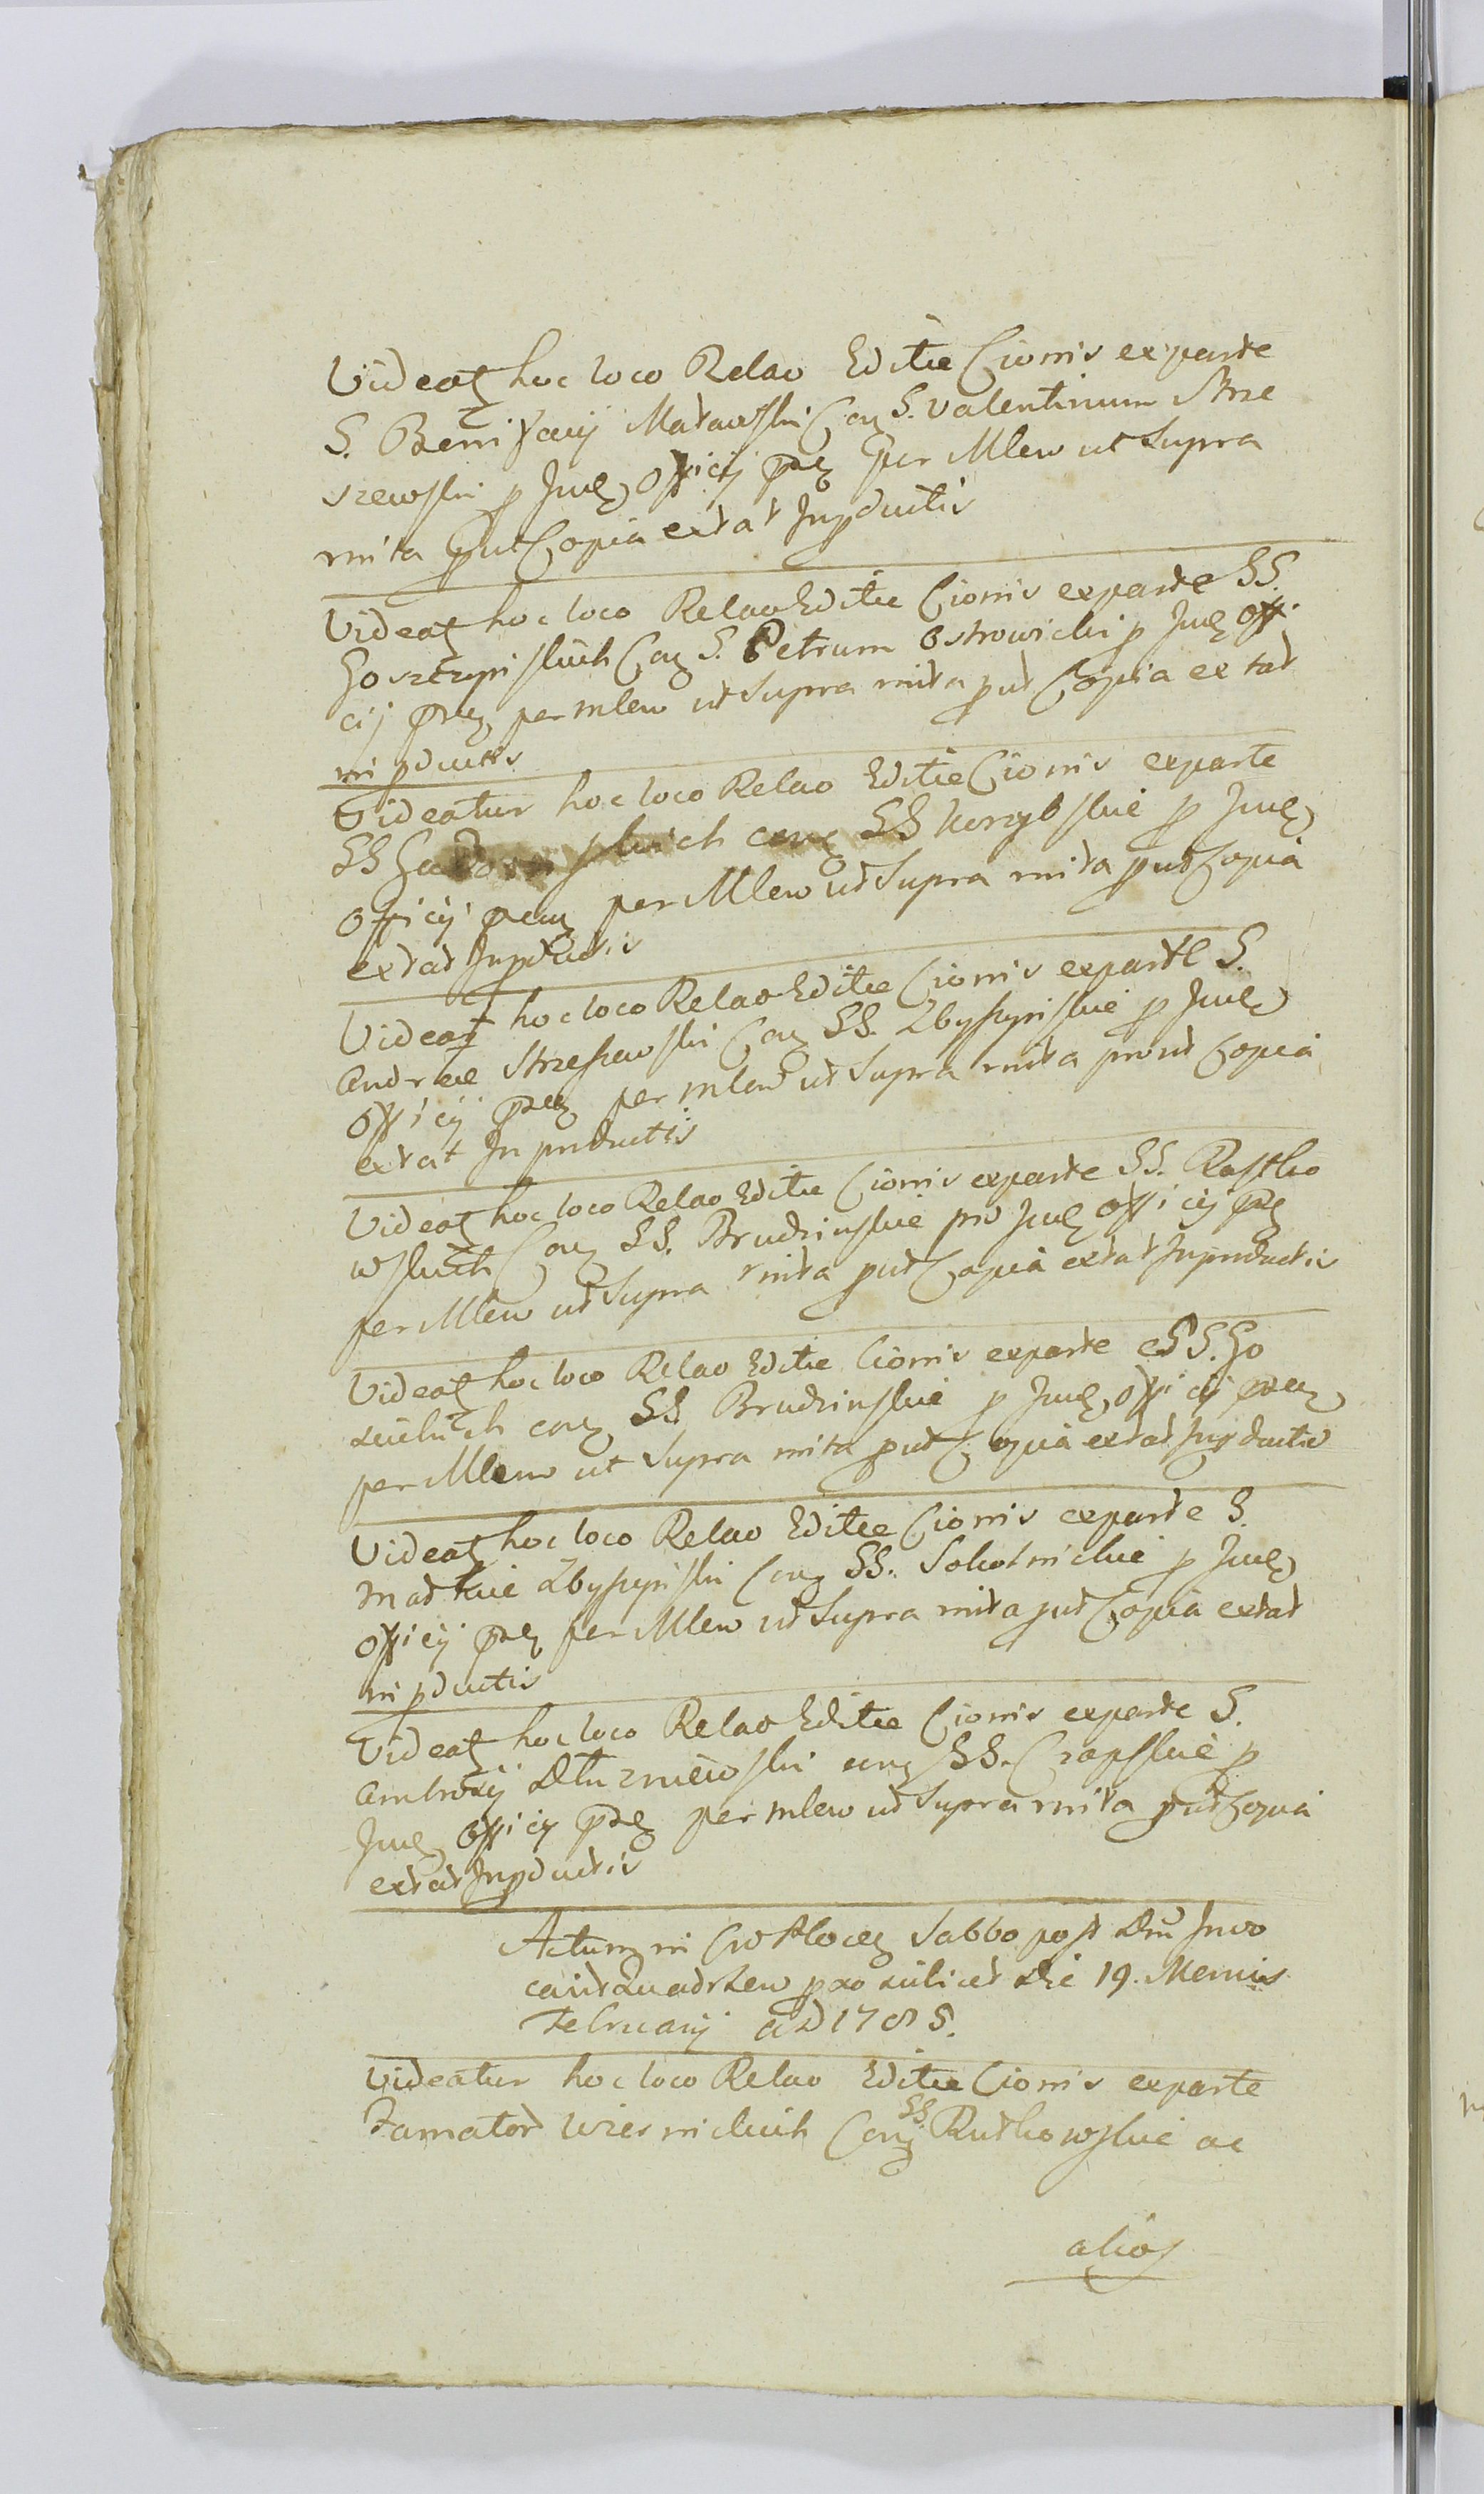 Videatr hoc loco Relao Editæ Cionis exparte
S. Bonifacij Madawski Con S. Valentinum Strze
szewski p Jud Officij præ per Mlem ut Supra
mita put Copia extat Inpductis
Videatr hoc loco Relao Editæ Cionis exparte SS.
Goszczyńskich Con S. Petrum Ostrowicki p Jud Offi
cij præ per mlem ut Supra mita put Copia extat
in pductis
Videatur hoc loco Relao Editæ Cionis exparte
SS con SS Korzybskie p Jud
Officij præ per Mlem ut Supra mita put Copia
extat Inpductis
Videatr hoc loco Relao Editæ Cionis exparte S.
Andreæ Strzeszewski Con SS. Zbyszyńskie p Jud
Officij præ per mlem ut Supra mita prout Copia
extat In productis
Videatr hoc loco Relao Editæ Cionis exparte SS. Rostko
wskich Con SS. Brudzinskie pro Jud Officij præ
per Mlem ut Supra mita put Copia extat Inproductis
Videatr hoc loco Relao Editæ Cionis exparte SS. Go
con SS Brudzinskie p Jud Officij præ
per Mlem ut Supra mita put Copia extat Inpductis
Videatr hoc loco Relao Editæ Cionis exparte S.
Zbyszyński Con SS. Sokolnickie p Jud
Officij præ per Mlem ut Supra mita put Copia extat
in pductis
Videatr hoc loco Relao Editæ Cionis exparte S.
Ambrosij Dłuzniewski con SS. Czapskie p
Jud Officij præ per mlem ut Supra mita put Copia
extat Inpductis
Actum in Sabbo post Dnm Invo
cavit Quadrlem pxo Die 19. Mensis
Februarij AD 1785.
Videatur hoc loco Relao Editæ Cionis exparte
Famator Wiesnickich Con SS. Rutkowskie ac
alios